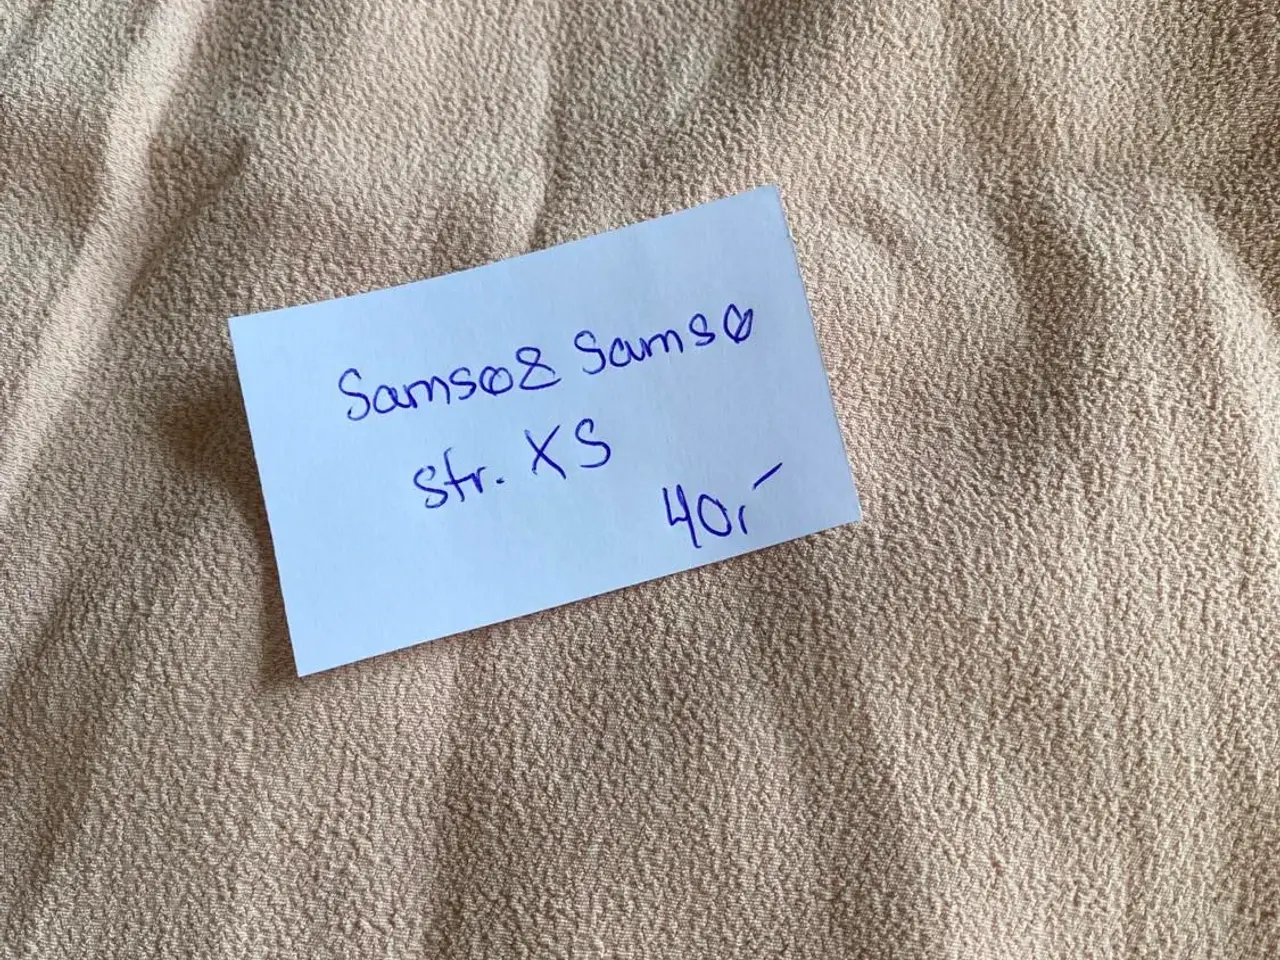 Samsø & Samsø
str. XS
40,-